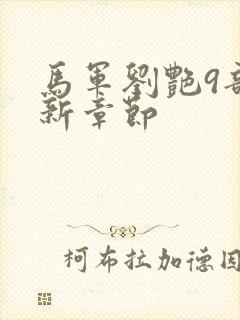 馬軍劉艷9部
新章節
柯布拉加德因